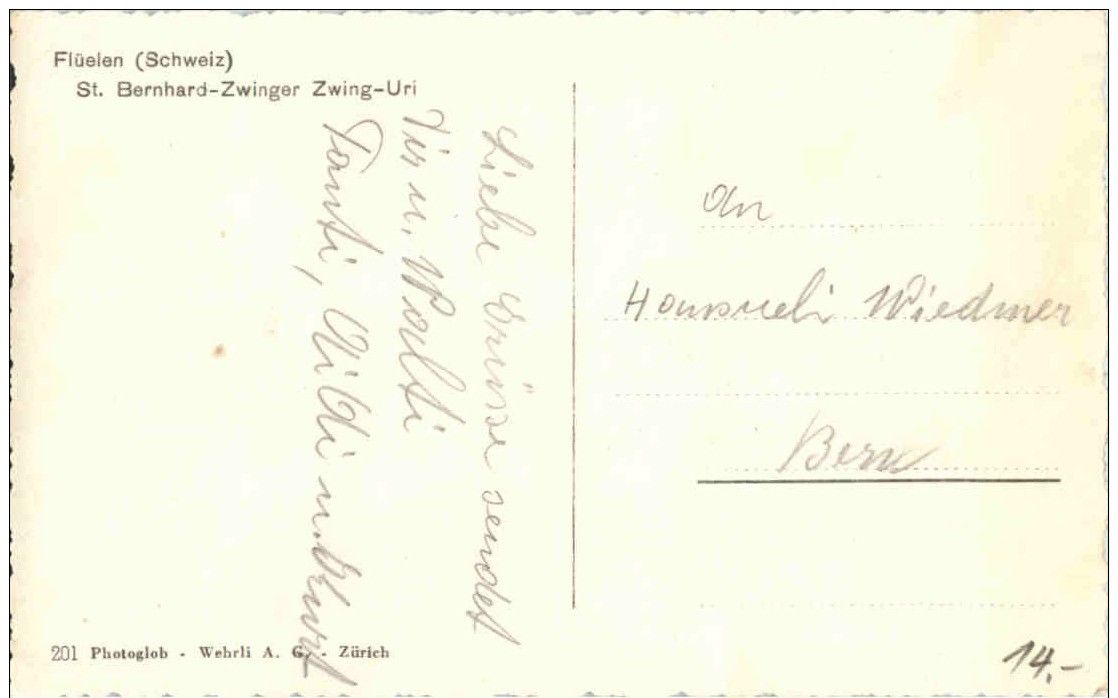 Flüelen (Schweiz)
St. Bernhard-Zwinger Zwing-Uri
Liebe Grüsse sendet
Dir u. Walti
Tanti, u. Kurt
An
Hansueli Wiedmer
Bern
201 Photoglob - Wehrli A. G. - Zürich
14.-